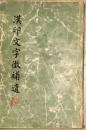 漢印文字徵補遺